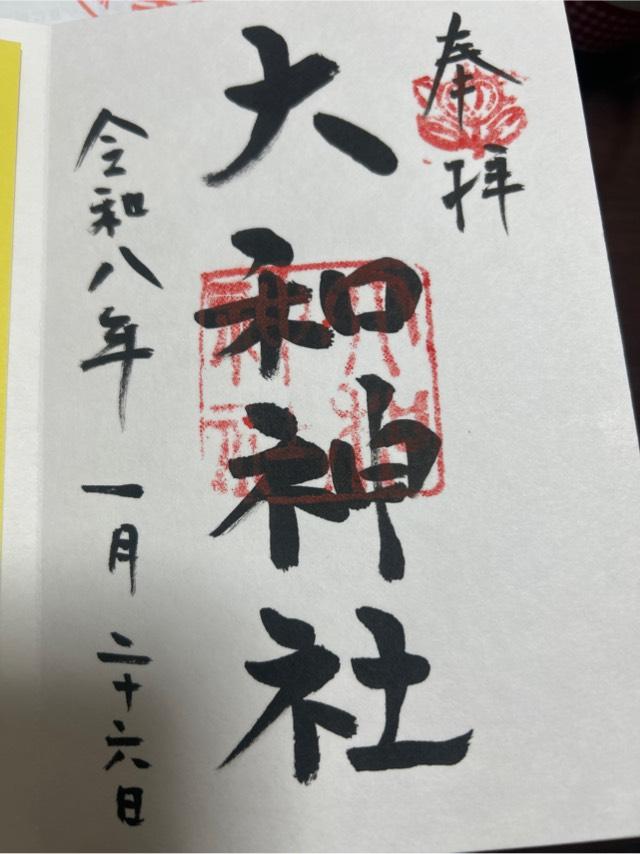 奉拝
大和神社
令和八年 一月 二十六日